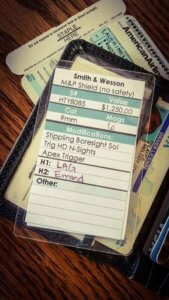 STAPLE
HERE
Smith & Wesson
M&P Shield (no safety)
S# Value
HTY8085 $1,250.00
Cal Mags
9mm
Modifications:
Stippling Boresight Sol
Trig HD N-Sights
Apex Trigger
H1: LAG
H2: Errand
Other: